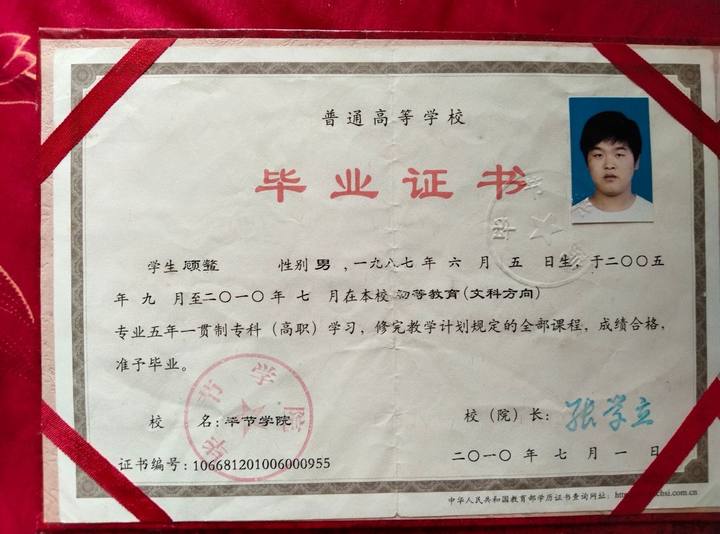 普通高等学校
毕业证书
学生 顾鳌 性别 男 ，一九八七 年 六 月 五 日生，于二〇〇五
年 九 月至二〇一〇 年 七 月在本校 初等教育(文科方向)
专业五年一贯制专科（高职）学习，修完教学计划规定的全部课程，成绩合格，
准予毕业。
校 名：毕节学院
校（院）长：张学立
毕节学院
证书编号：106681201006000955
二〇一〇 年 七 月 一 日
中华人民共和国教育部学历证书查询网址：chsi.com.cn